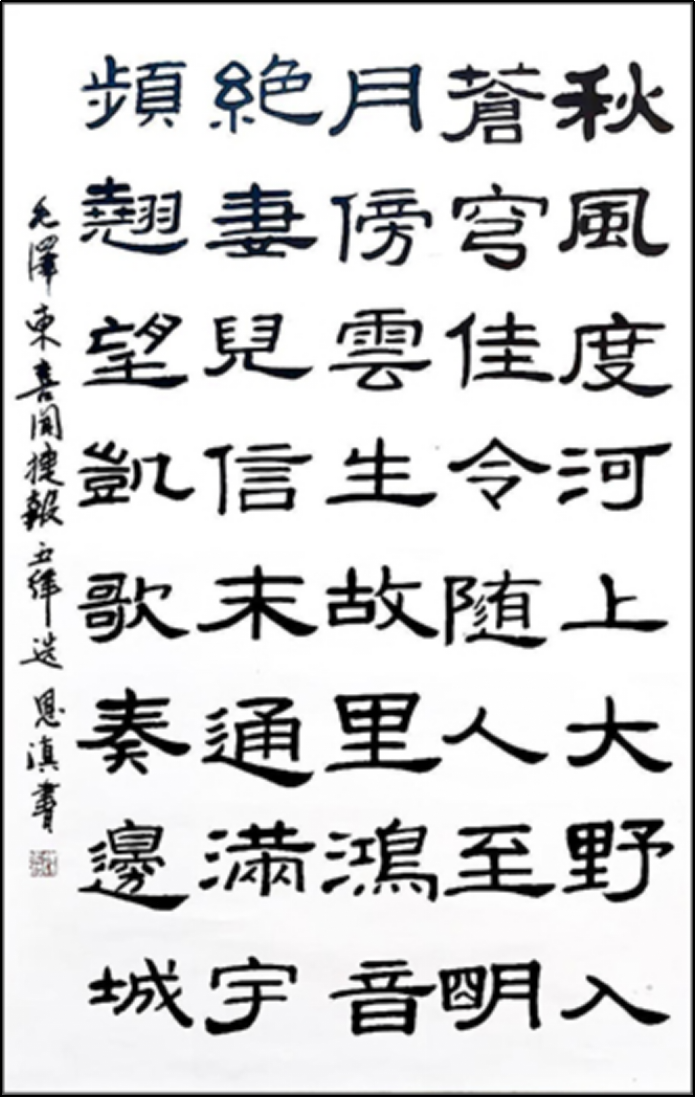 秋風度河上大野入
蒼穹佳令随人至朙
月傍雲生故里鴻音
絶妻兒信末通滿宇
頻翹望凱歌奏邊城
毛澤東喜闻捷報五律选 恩滇書